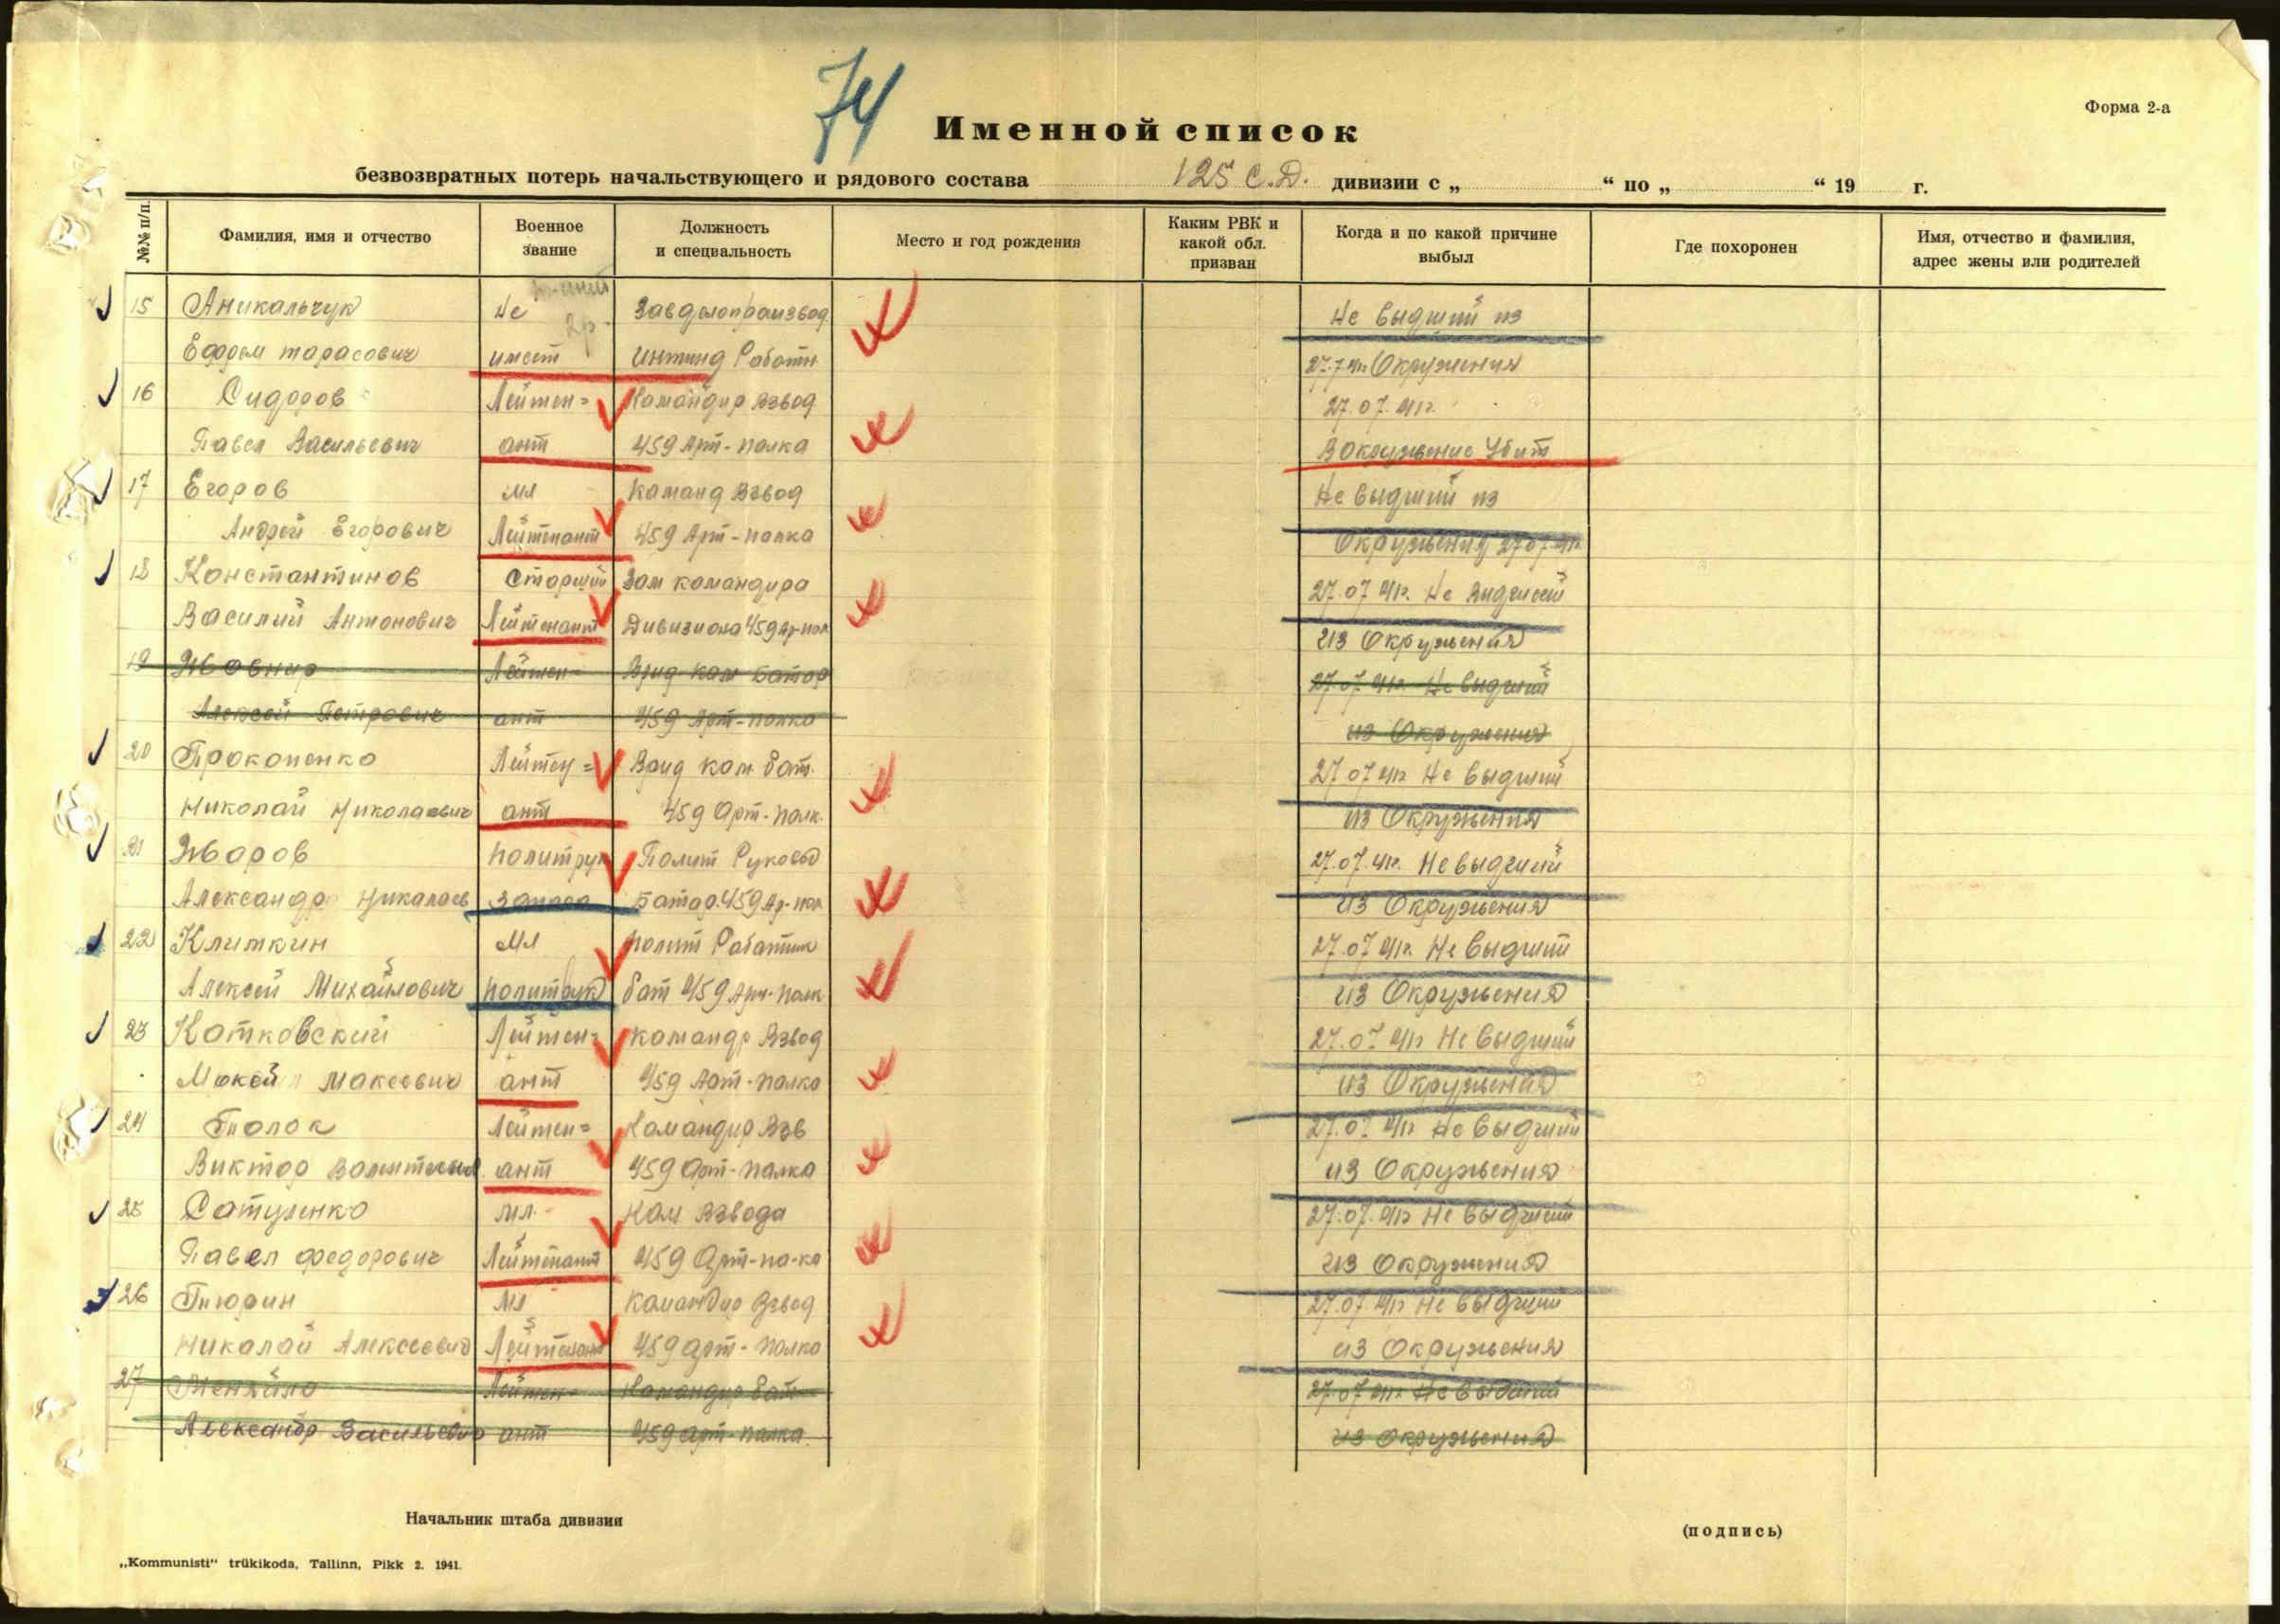 74
Форма 2-а
Именной список
безвозвратных потерь начальствующего и рядового состава 125 С.Д. дивизии с „ “ по „ “ 19 г.
№№ п/п. Фамилия, имя и отчество Военное звание Должность и специальность Место и год рождения Каким РВК и какой обл. призван Когда и по какой причине выбыл Где похоронен Имя, отчество и фамилия, адрес жены или родителей
15 Аникальчук Не Завделопроизвод. Не выдший из
Ефрем тарасович имеет интенд Работн 27.7.41г. Окружения
16 Сидоров Лейтен= Командир взвод 27.07.41г.
Павел Васильевич ант 459 Арт-полка В Окружение Убит
17 Егоров Мл Команд Взвод Не выдший из
Андрей Егорович Лейтенант 459 Арт-полка Окружения 27.07.41г.
18 Константинов Старший Зам командира 27.07.41г. Не выдший
Василий Антонович Лейтенант Дивизиона 459 Ар-пол из Окружения
19 Жовнир Лейтен= Врид ком батор 27.07.41г. Не выдший
Алексей Петрович ант 459 Арт-полка из Окружения
20 Прокопенко Лейтен= Врид ком бат. 27.07.41г. Не выдший
Николай Николаевич ант 459 Арт-полк. из Окружения
21 Жаров политрук Полит Руковод 27.07.41г. Не выдший
Александр Николаев запаса Батар. 459 Ар-пол. из Окружения
22 Климкин Мл полит Работник 27.07.41г. Не выдший
Алексей Михайлович политрук бат 459 Арт-полк из Окружения
23 Котковский Лейтен= командр Взвод 27.07.41г. Не выдший
Мокей Макеевич ант 459 Арт-полка из Окружения
24 Лейтен= Командир Взв 27.07.41г. Не выдший
Виктор ант 459 Арт-полка из Окружения
25 Сатуленко мл. Ком Взвода 27.07.41г. Не выдший
Павел федорович Лейтенант 459 Арт-по-ка из Окружения
26 Тюрин Мл Командир Взвод 27.07.41г. Не выдший
Николай Алексеевич Лейтенант 459 Арт-полка из Окружения
27 Лейтен= Командир бат 27.07.41г. Не выдший
Александр Васильевич ант 459 арт-полка. из Окружения
Начальник штаба дивизии
(подпись)
„Kommunisti“ trükikoda, Tallinn, Pikk 2. 1941.